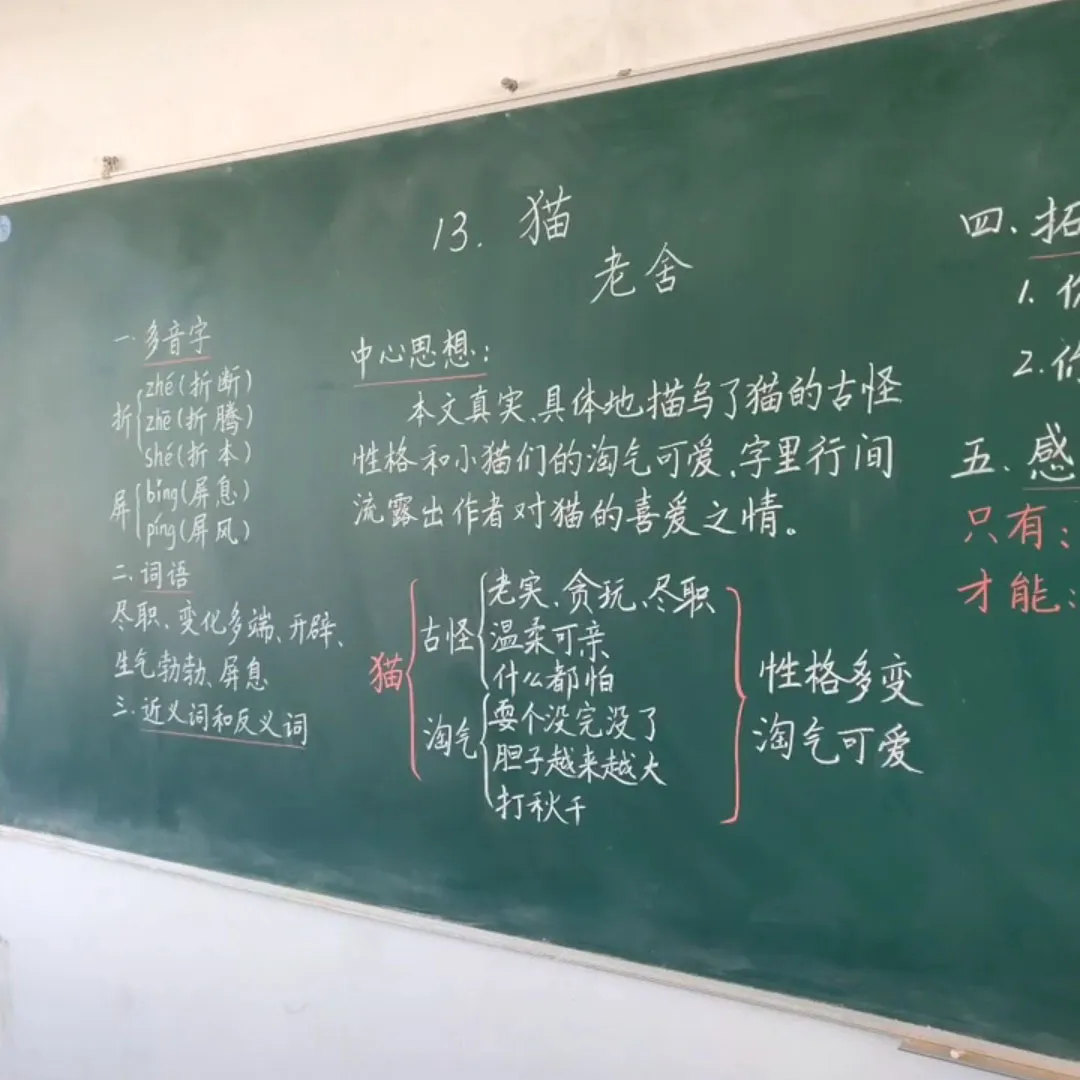 13. 猫
老舍
一.多音字
折
zhé(折断)
zhē(折腾)
shé(折本)
屏
bǐng(屏息)
píng(屏风)
二.词语
尽职、变化多端、开辟、
生气勃勃、屏息
三.近义词和反义词
中心思想:
本文真实、具体地描写了猫的古怪
性格和小猫们的淘气可爱,字里行间
流露出作者对猫的喜爱之情。
猫
古怪
老实、贪玩、尽职
温柔可亲
什么都怕
淘气
耍个没完没了
胆子越来越大
打秋千
性格多变
淘气可爱
四.拓
1.你
2.你
五.感
只有:
才能: